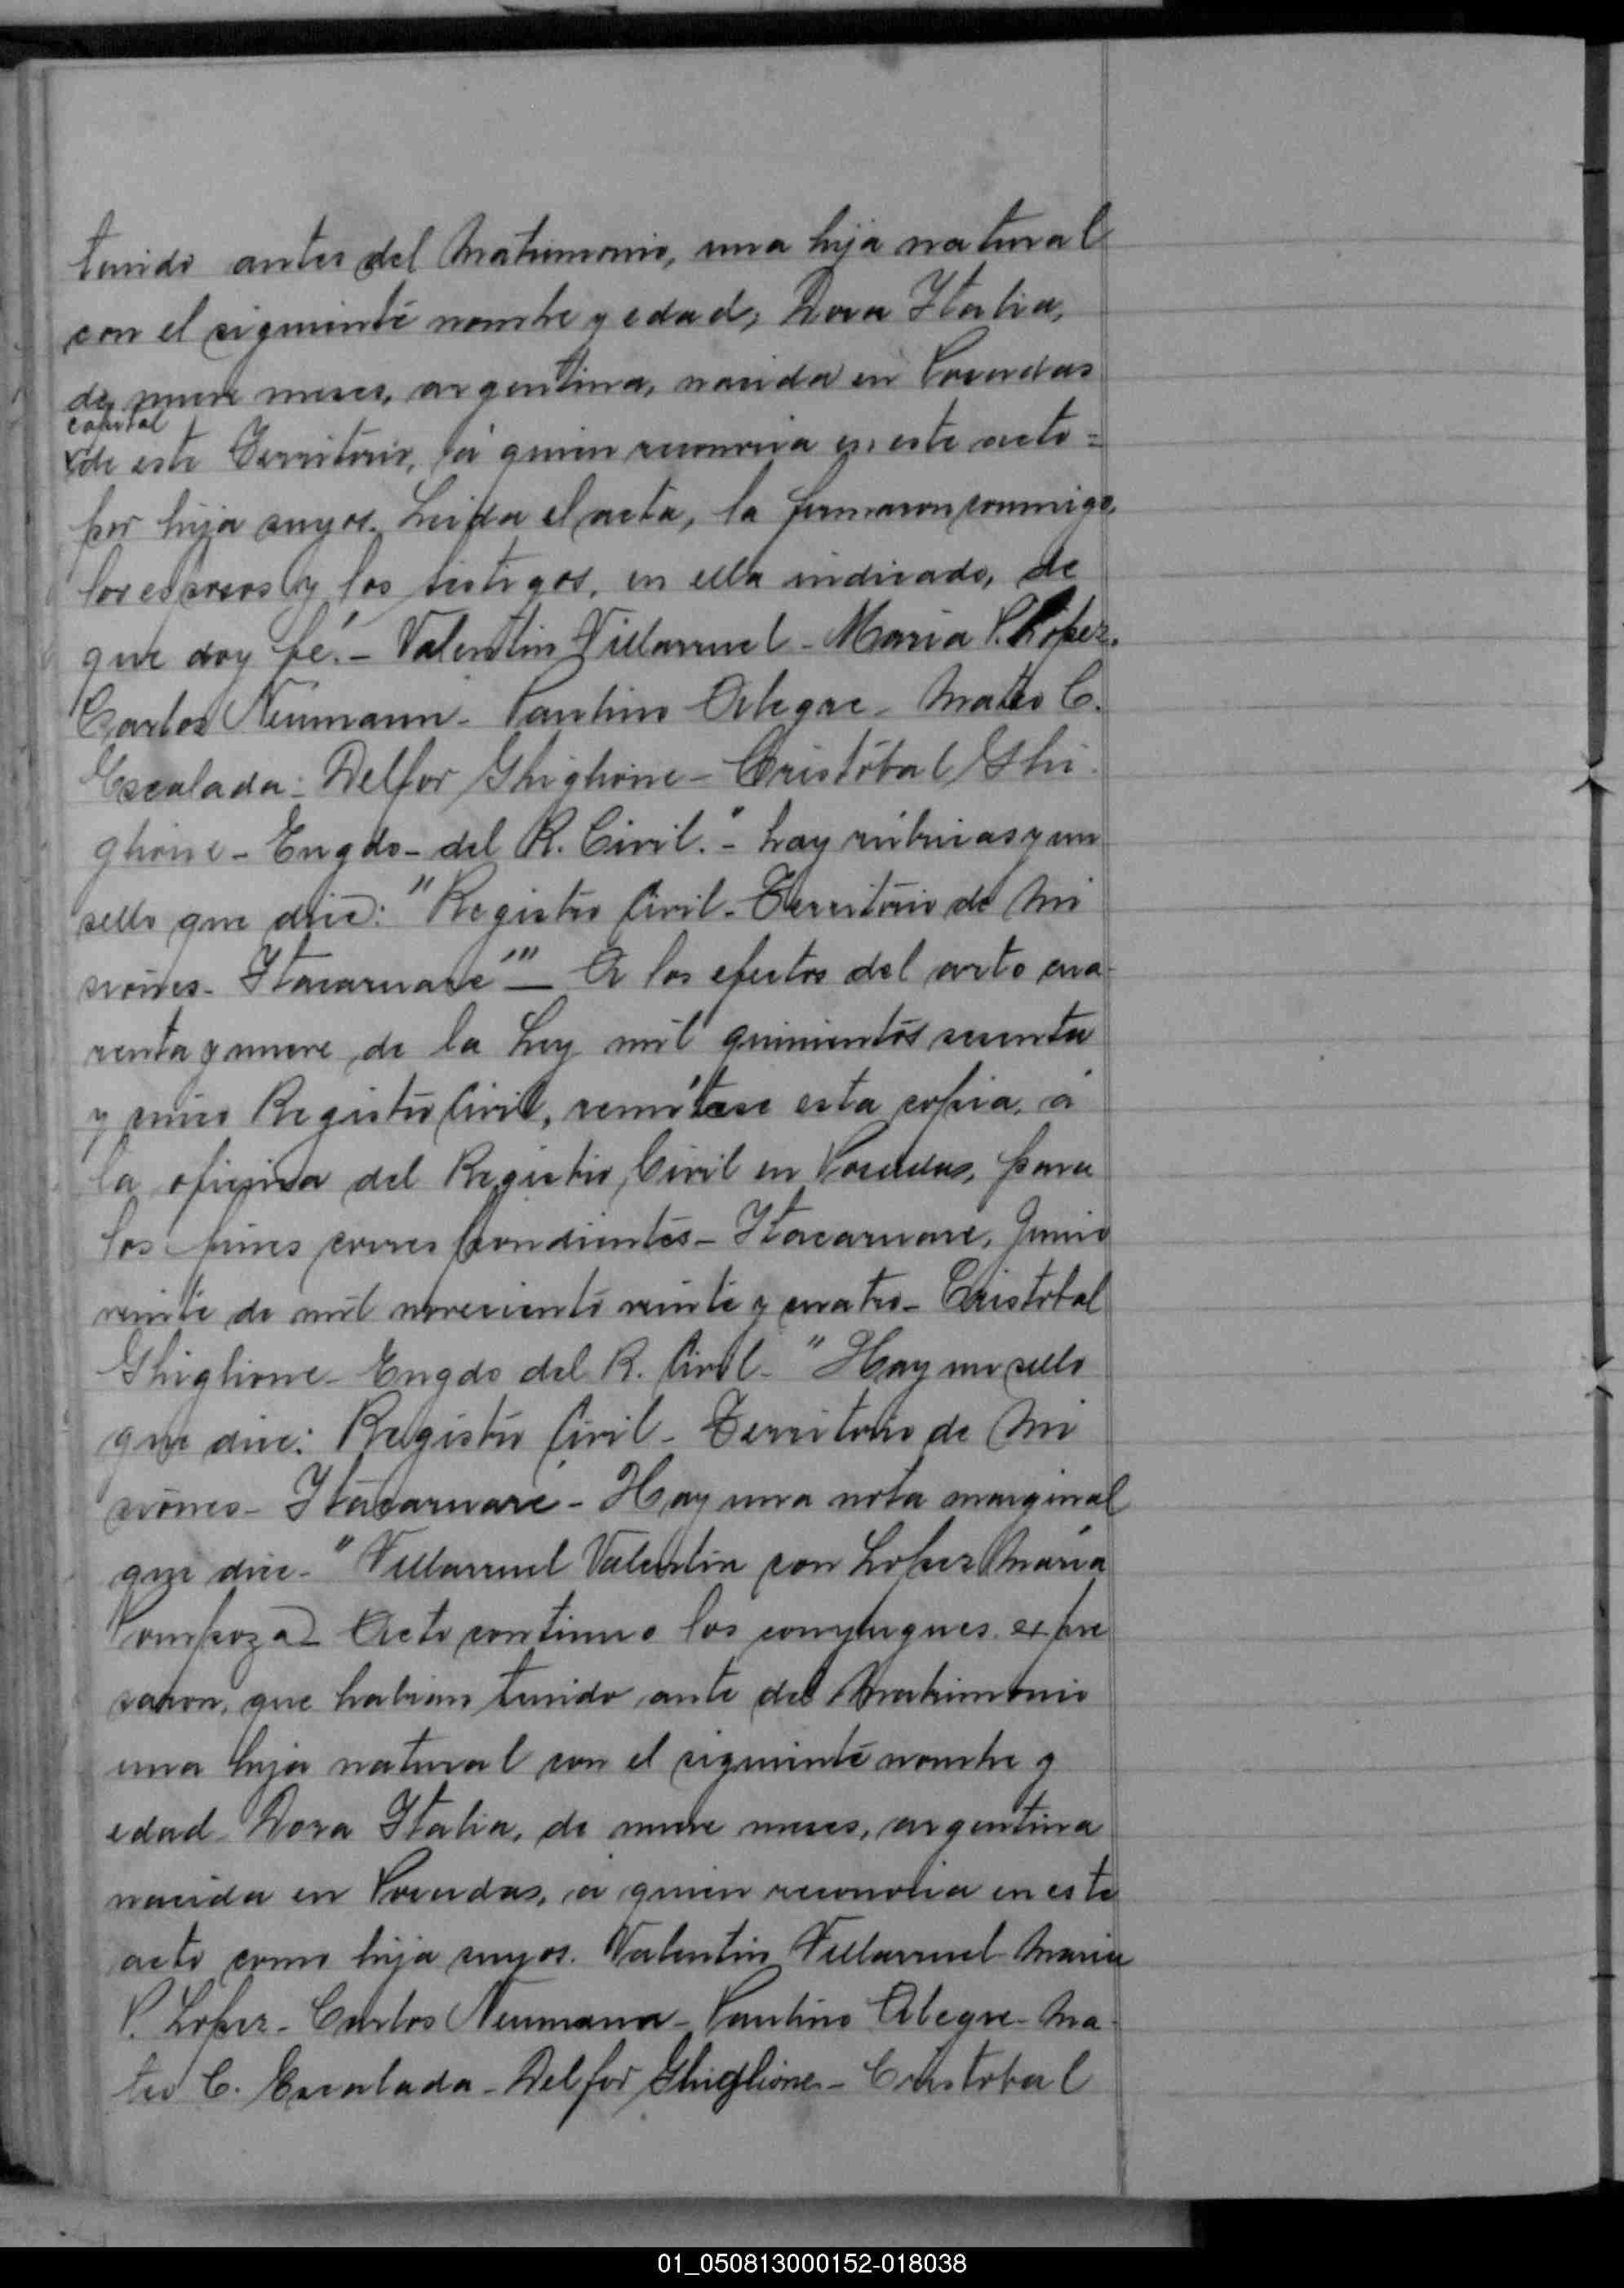 tenido antes del Matrimonio, una hija natural
con el siguiente nombre y edad; Dora Italia,
de nueve meses, argentina, nacida en Posadas
capital
de este Territorio, á quien reconocia en este acto=
por hija suyos. Leida el acta, la firmaron conmigo,
los esposos y los testigos, en ella indicado, de
que doy fé.- Valentin Villarruel - Maria P. Lopez.
Carlos Neumann - Paulino Alegre - Mateo C.
Escalada - Delfor Ghiglione - Cristóbal Ghi
glione - Engdo - del R. Civil." - hay rúbricas y un
sello que dice: "Registro Civil - Territorio de Mi
siones - Itacaruaré"" - A los efectos del arto cua-
renta y nueve de la Ley mil quinientos sesenta
y cinco Registro Civil, remitase esta copia, á
la oficina del Registro Civil en Posadas, para
los fines correspondientes - Itacaruare, Junio
veinte de mil noveciento veinte y cuatro - Cristobal
Ghiglione - Engdo del R. Civil - "Hay un sello
que dice: Registro Civil - Territorio de Mi
siones - Itacaruaré - Hay una nota marginal
que dice - "Villarruel Valentin con Lopez Maria
Acto continuo los conyugues expre
saron, que habian tenido ante del Matrimonio
una hija natural con el siguiente nombre y
edad Dora Italia, de nueve meses, argentina
nacida en Posadas, á quien reconocia en este
acto como hija suyos. Valentin Villarruel - Maria
P. Lopez - Carlos Neumann - Paulino Alegre - Ma-
teo C. Escalada - Delfor Ghiglione - Cristobal
01_050813000152-018038